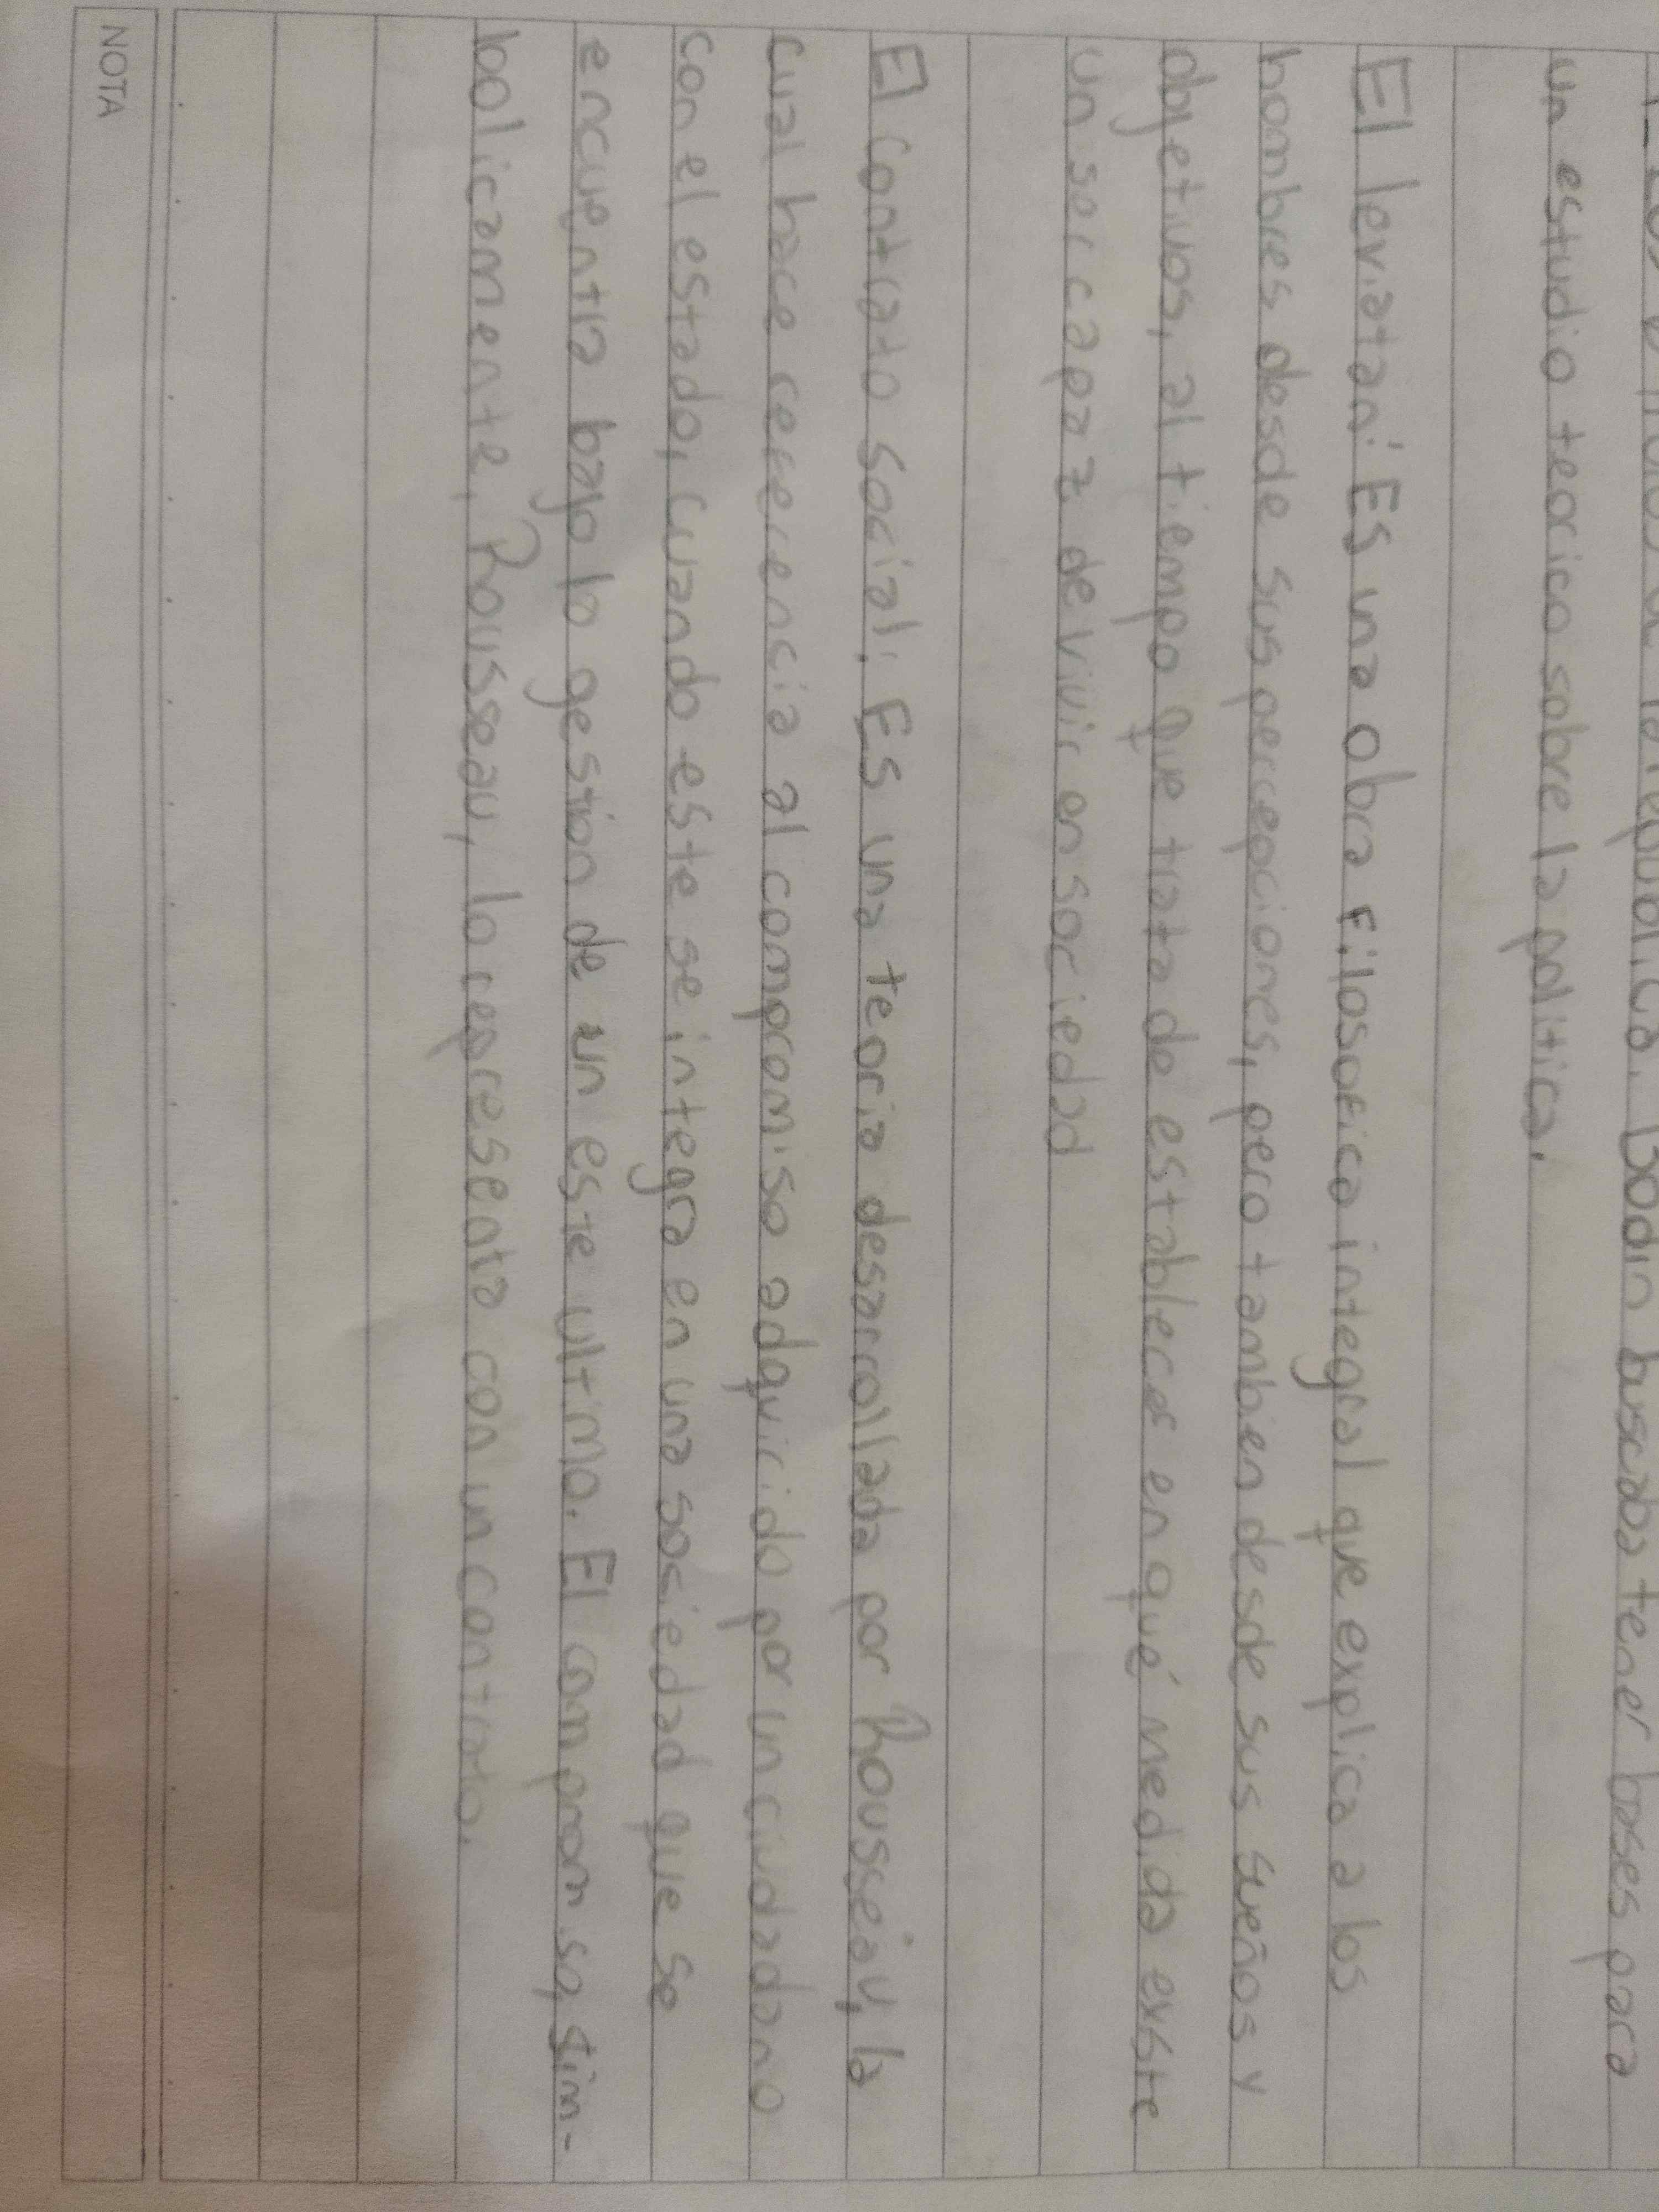 la republica. Bodin buscaba tener bases para
un estudio teorico sobre la politica.
El leviatan: Es una obra filosofica integral que explica a los
hombres desde sus percepciones, pero tambien desde sus sueños y
objetivos, al tiempo que trata de establecer en qué medida existe
un ser capaz de vivir en sociedad
El contrato social: Es una teoria desarrollada por Rousseau, la
cual hace referencia al compromiso adquirido por un ciudadano
con el estado, cuando este se integra en una sociedad que se
encuentra bajo la gestion de un este ultimo. El compromiso, sim-
bolicamente, Rousseau, lo representa con un contrato.
NOTA